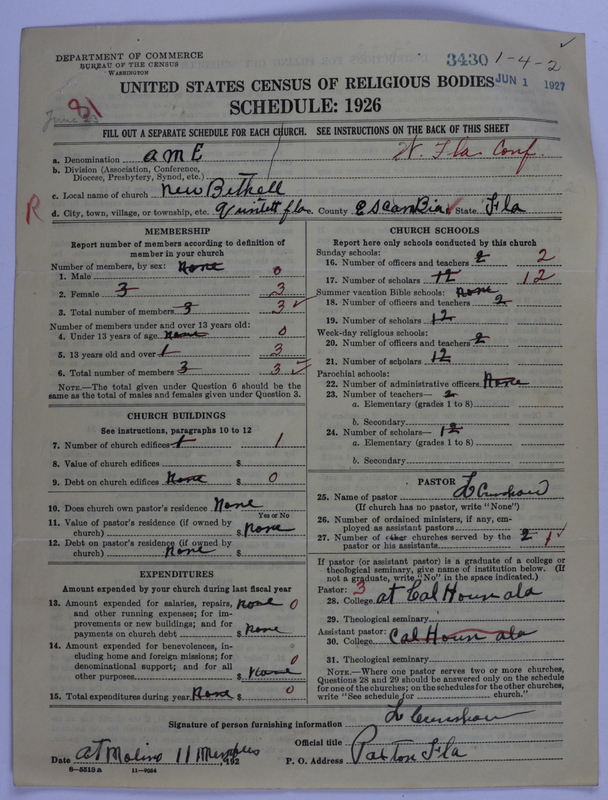 DEPARTMENT OF COMMERCE
BUREAU OF THE CENSUS
WASHINGTON
3430 1-4-2
UNITED STATES CENSUS OF RELIGIOUS BODIES JUN 1 1927
SCHEDULE: 1926
81
FILL OUT A SEPARATE SCHEDULE FOR EACH CHURCH. SEE INSTRUCTIONS ON THE BACK OF THIS SHEET
a. Denomination AME W. Fla Conf.
b. Division (Association, Conference,
Diocese, Presbytery, Synod, etc.)
c. Local name of church New Bethell
R d. City, town, village, or township, etc. Quintett fla c. County Escambia State Fla
MEMBERSHIP
Report number of members according to definition of
member in your church
Number of members, by sex: None
1. Male 0
2. Female 3 3
3. Total number of members 3 3 ✓
Number of members under and over 13 years old:
4. Under 13 years of age None 0
5. 13 years old and over 1 3
6. Total number of members 3 3 ✓
NOTE.—The total given under Question 6 should be the
same as the total of males and females given under Question 3.
CHURCH BUILDINGS
See instructions, paragraphs 10 to 12
7. Number of church edifices 1 1
8. Value of church edifices $
9. Debt on church edifices None $ 0
10. Does church own pastor's residence None
Yes or No
11. Value of pastor's residence (if owned by
church) $ None
12. Debt on pastor's residence (if owned by
church) None $
EXPENDITURES
Amount expended by your church during last fiscal year
13. Amount expended for salaries, repairs, None 0
and other running expenses; for im-
provements or new buildings; and for
payments on church debt $ None
14. Amount expended for benevolences, in-
cluding home and foreign missions; for
denominational support; and for all 0
other purposes $ None
15. Total expenditures during year None $ 0
CHURCH SCHOOLS
Report here only schools conducted by this church
Sunday schools:
16. Number of officers and teachers 2 2
17. Number of scholars 12 12
Summer vacation Bible schools: None
18. Number of officers and teachers 2
19. Number of scholars 12
Week-day religious schools:
20. Number of officers and teachers 2
21. Number of scholars 12
Parochial schools:
22. Number of administrative officers None
23. Number of teachers— 2
a. Elementary (grades 1 to 8)
b. Secondary
24. Number of scholars— 12
a. Elementary (grades 1 to 8)
b. Secondary
PASTOR
25. Name of pastor L Crenshaw
(If church has no pastor, write "None")
26. Number of ordained ministers, if any, em-
ployed as assistant pastors
27. Number of other churches served by the 2 1 ✓
pastor or his assistants
If pastor (or assistant pastor) is a graduate of a college or
theological seminary, give name of institution below. (If
not a graduate, write "No" in the space indicated.)
Pastor: 3
28. College at Cal Houn ala
29. Theological seminary
Assistant pastor:
30. College Cal Houn ala
31. Theological seminary
NOTE.—Where one pastor serves two or more churches,
Questions 28 and 29 should be answered only on the schedule
for one of the churches; on the schedules for the other churches,
write "See schedule for church."
Signature of person furnishing information L Crenshaw
Official title
Date at Molino 11 192
P. O. Address Paxton Fla
8—5518 a 11—9064